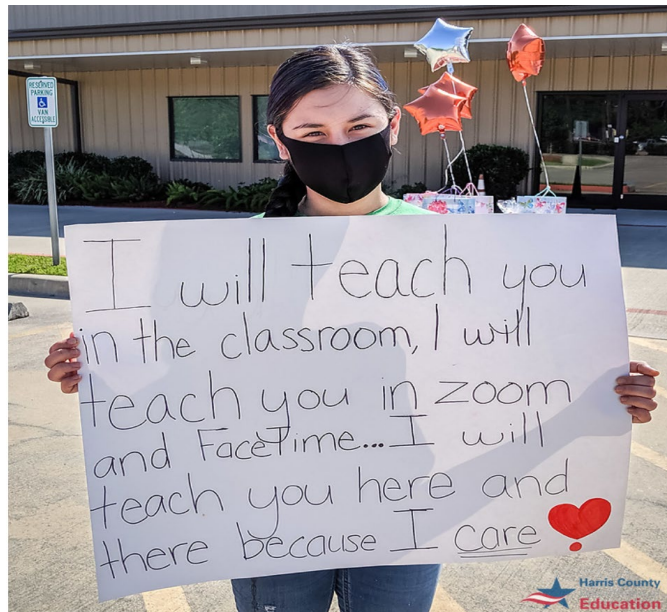 RESERVED
PARKING
VAN
ACCESSIBLE
I will teach you
in the classroom, I will
teach you in zoom
and FaceTime... I will
teach you here and
there because I care
Harris County
Education